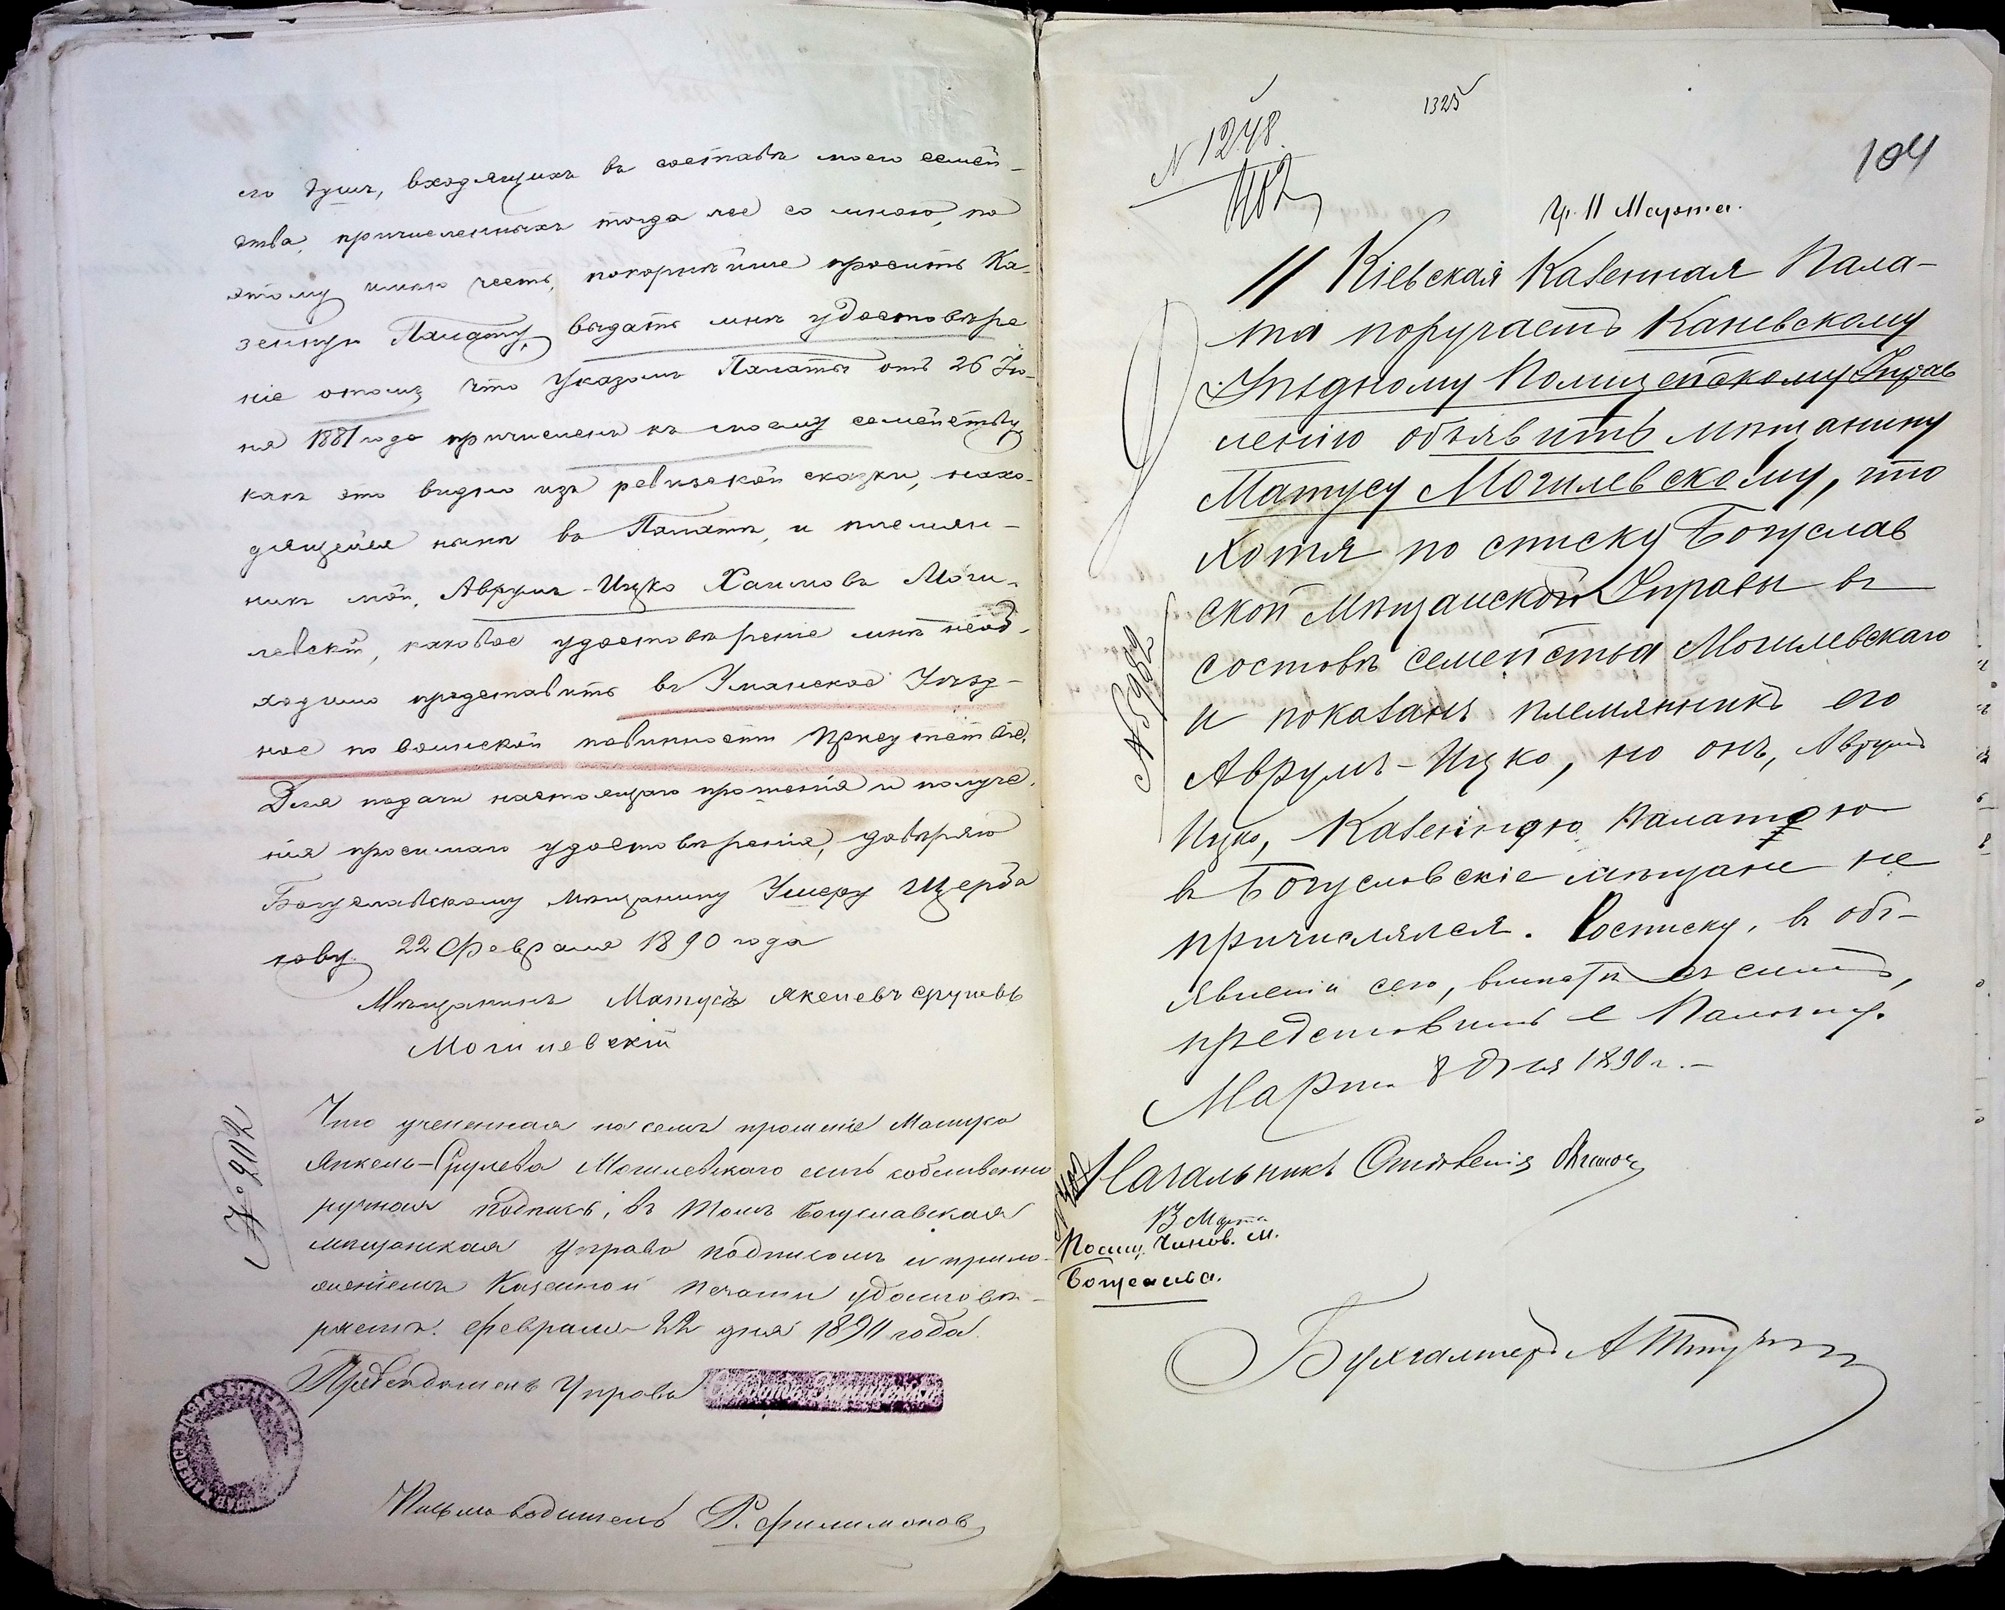 его душъ, входящихъ въ составъ моего семей-
ства, причисленныхъ тогда же со мною, по
этому имѣю честь, покорнѣйше просить Ка-
зенную Палату, выдать мнѣ удостовѣре
ніе отомъ, что Указомъ Палаты отъ 26 Ію-
ня 1881 года причисленъ къ моему семейству,
какъ это видно изъ ревизской сказки, нахо-
дящейся нынѣ въ Палатѣ, и племян-
никъ мой, Аврумъ-Ицко Хаимовъ Моги-
левскій, каковое удостовѣреніе мнѣ необ-
ходимо представить въ Уманское Уѣзд-
ное по воинской повинности Присутствіе.
Для подачи настоящаго прошенія и получе-
нія просимаго удостовѣренія, довѣряю
Богуславскому мѣщанину Умеру Щерба
кову. 22 Февраля 1890 года
Мѣщанинъ Матусъ Якелевъ сруневъ
Могилевскій
№ 2112
Что учененная на семъ прошеніе Матуса
Янкель-Срулева Могилевскаго есть собственно
ручная подпись, въ томъ Богуславская
мѣщанская Управа подписомъ и прило-
женіемъ Казенной печати удостовѣ-
ряетъ. Февраля 22 дня 1890 года.
Предсѣдатель Управы
Письмоводитель Р. Филимонов
1325
№ 1248.
1402
104
Ц. 11 Марта.
11 Кіевская Казенная Пала-
та поручаетъ Каневскому
Уѣздному Полицейскому Управ
ленію объявить мѣщанину
Матусу Могилевскому, что
хотя по списку Богуслав
ской Мѣщанской Управы въ
составѣ семейства Могилевскаго
и показанъ племянникъ его
Аврумъ-Ицко, но онъ, Аврумъ
Ицко, Казенною Палатою
въ Богуславскіе мѣщане не
причислялся. Росписку, въ объ-
явленіи сего,
представить въ Палату.
Марта 8 дня 1890 г. –
№ 5982
Начальникъ Отдѣленія
13 Марта
Полиц. Чинов. м.
Богуслава.
Бухгалтеръ А